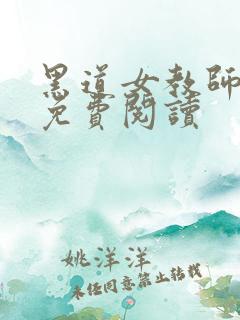 黑道女教師
免費閱讀
姚洋洋
未经同意禁止转载